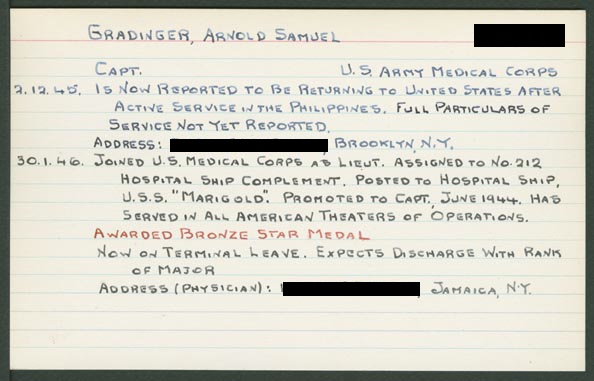 GRADINGER, ARNOLD SAMUEL
CAPT. U.S. ARMY MEDICAL CORPS
2.12.45. IS NOW REPORTED TO BE RETURNING TO UNITED STATES AFTER
ACTIVE SERVICE IN THE PHILIPPINES. FULL PARTICULARS OF
SERVICE NOT YET REPORTED.
ADDRESS: BROOKLYN, N.Y.
30.1.46. JOINED U.S. MEDICAL CORPS AS LIEUT. ASSIGNED TO NO. 212
HOSPITAL SHIP COMPLEMENT. POSTED TO HOSPITAL SHIP,
U.S.S. "MARIGOLD". PROMOTED TO CAPT., JUNE 1944. HAS
SERVED IN ALL AMERICAN THEATERS OF OPERATIONS.
AWARDED BRONZE STAR MEDAL
NOW ON TERMINAL LEAVE. EXPECTS DISCHARGE WITH RANK
OF MAJOR
ADDRESS (PHYSICIAN): , JAMAICA, N.Y.